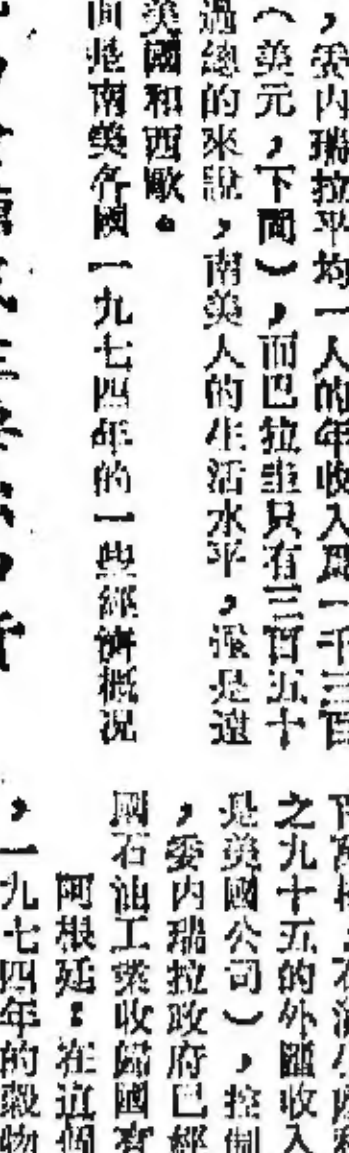 ，委內瑞拉平均一人的年收入爲一千三百
（美元，下同），而巴拉圭只有三百五十
過總的來說，南美人的生活水平，還是遠
美國和西歐。
面是南美各國一九七四年的一些經濟概况
之九十五的外匯收入
是美國公司），控制
，委內瑞拉政府已經
國石油工業收歸國有
阿根廷：在這個
，一九七四年的穀物